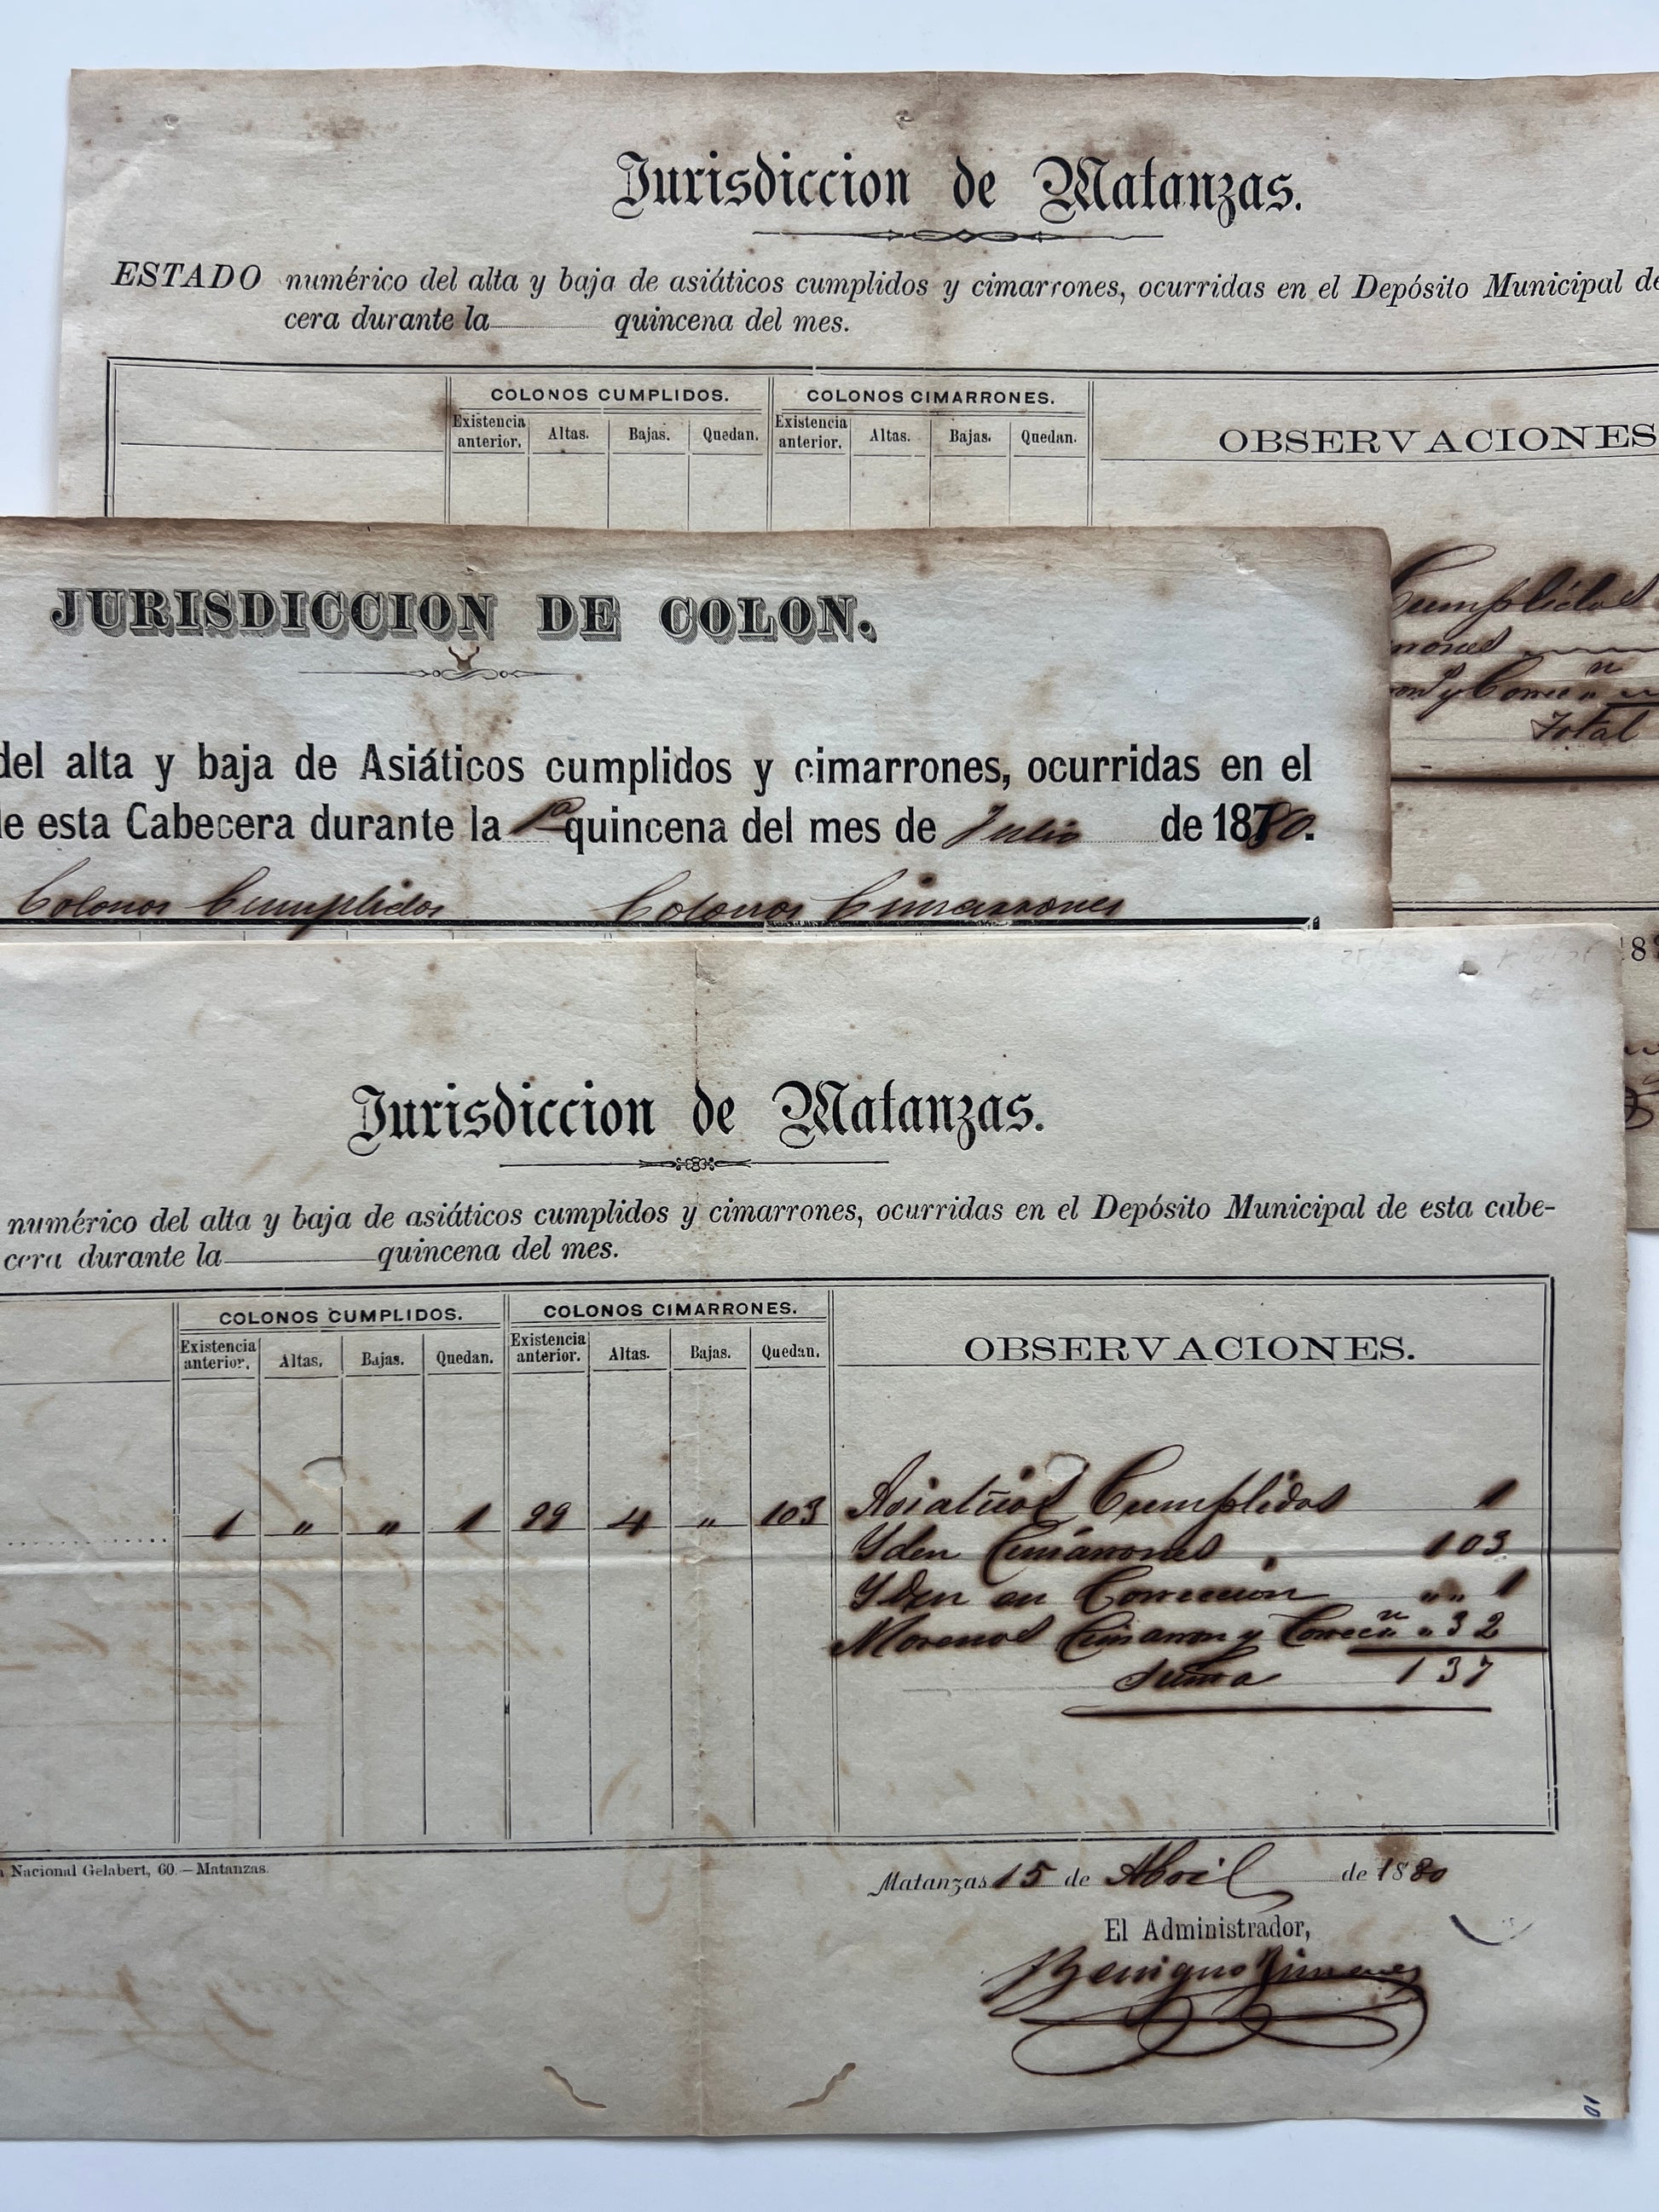 Jurisdiccion de Matanzas.
ESTADO numérico del alta y baja de asiáticos cumplidos y cimarrones, ocurridas en el Depósito Municipal de
cera durante la quincena del mes.
COLONOS CUMPLIDOS. COLONOS CIMARRONES.
Existencia anterior. Altas. Bajas. Quedan. Existencia anterior. Altas. Bajas. Quedan. OBSERVACIONES
Cumplidos
rrones
y Correcn
Total
JURISDICCION DE COLON.
del alta y baja de Asiáticos cumplidos y cimarrones, ocurridas en el
de esta Cabecera durante la 1a quincena del mes de Julio de 1880.
Colonos Cumplidos Colonos Cimarrones
Jurisdiccion de Matanzas.
numérico del alta y baja de asiáticos cumplidos y cimarrones, ocurridas en el Depósito Municipal de esta cabe-
cera durante la quincena del mes.
COLONOS CUMPLIDOS. COLONOS CIMARRONES.
Existencia anterior. Altas. Bajas. Quedan. Existencia anterior. Altas. Bajas. Quedan. OBSERVACIONES.
1 " " 1 99 4 " 103
Asiaticos Cumplidos 1
Yden Cimarrones 103
Yden en Correccion "" 1
Morenos Cimarron y Correcn " 32
Suma 137
Nacional Gelabert, 60.—Matanzas.
Matanzas 15 de Abril de 1880
El Administrador,
Benigno Jimenez
10